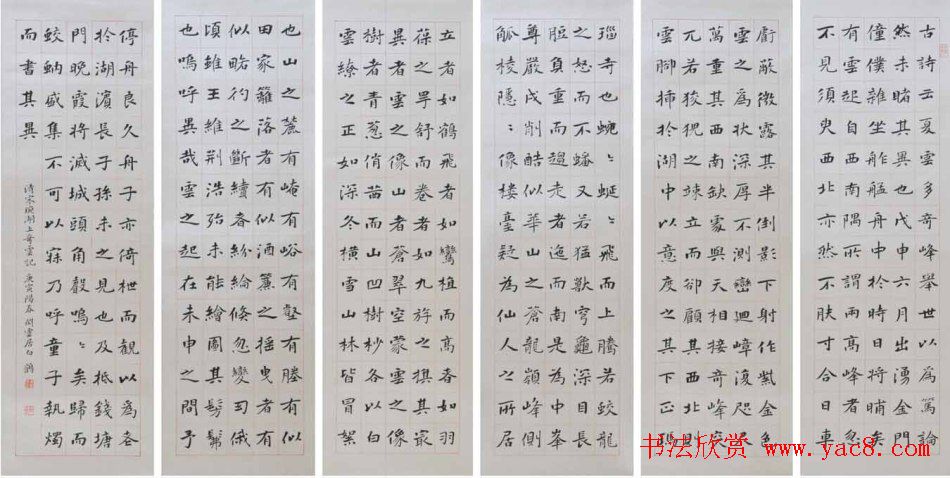 古詩云夏雲多奇峰世以為篤論
然未睹其異也戊申六月出湧金門
僮僕雜坐舴艋舟中於時日將晡矣
有雲起自西南隅所謂兩高峰者忽
不見須臾西北亦然不膚寸日車
虧蔽微露其半倒影下射作紫金色
雲之為狀深厚不測巒迴嶂複咫尺
萬重其西南缺處與天相接奇峰突
兀若狻猊之竦立而顧其西北則
雲腳插於湖中以意度之其下正瑪
瑙奇也蜿〻蜒〻飛而上騰若蛟龍
之怒而蟠又若猛獸穹龜深目長
脰負重而趨走者迤南是為中峯
尊嚴戌削酷似華山之蒼龍嶺峰側
觚棱隱〻像樓臺疑為仙人之所居
立者如鶴飛者如鸞植而高者如羽
葆之羃舒而卷者如九斿之旗其冣
異者雲之像山者蒼翠空蒙雲之像
樹者青蔥俏茜而山凹樹杪各以白
雲繚之正如深冬橫雪山林皆冒絮
也山之麓有崦有峪有壑有塍有似
田家籬落者有似酒簾之搖曳者有
似略彴之斷續者紛綸倏忽變幻俄
頃雖王維荊浩殆未能繪圖其髣髴
也嗚呼異哉雲之起在未申之間予
停舟良久舟子亦倚枻而觀以為吾
於湖濱長子孫未之見也及抵錢塘
門晚霞將滅城頭角聲嗚〻矣歸而
蛟蚋盛集不可以寐乃呼童子執燭
而書其異
清宋琬湖上奇雲記 庚寅陽春 閒雲居白鶴
书法欣赏 www.yac8.com